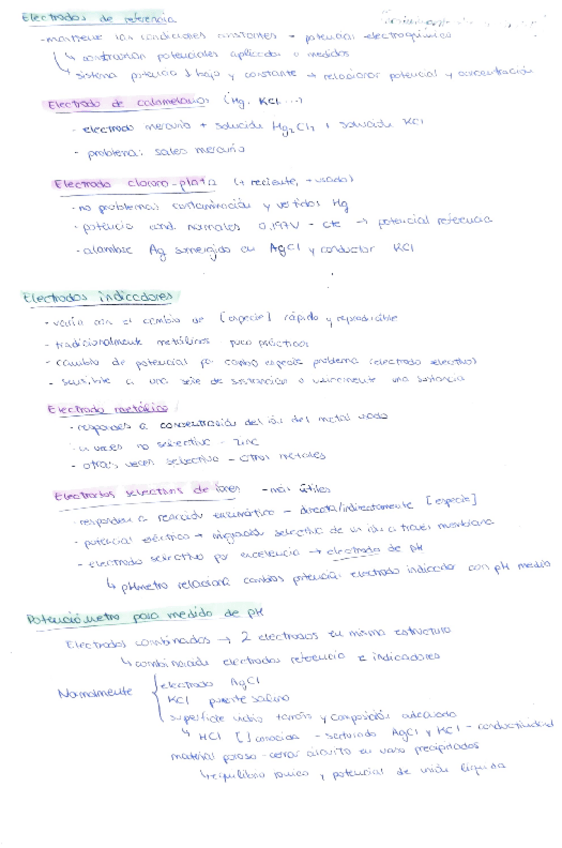 Electrodos de referencia
- mantiene las condiciones constantes → potencial electroquímico
↳ contrarían potenciales aplicados o medidos
↳ sistema potencia ↓ bajo y constante → relacionar potencial y concentración
Electrodo de calomelanos (Hg. KCl ...)
- electrodo mercurio + solución Hg2Cl2 + solución KCl
- problema: sales mercurio
Electrodo cloruro-plata (+ reciente, + usado)
- no problemas contaminación y vertidos Hg
- potencia cond normales 0,197V - cte → potencial referencia
- alambre Ag sumergido en AgCl y conductor KCl
Electrodos indicadores
- varía con el cambio de [especie] rápido y reproducible
- tradicionalmente metálicos poco prácticos
- cambio de potencial por cambio especie problema (electrodo selectivo)
- sensible a una serie de sustancias o únicamente una sustancia
Electrodo metálico
- responde a concentración del ión del metal usado
- a veces no selectivo - zinc
- otras veces selectivo - otros metales
Electrodos selectivos de iones - más útiles
- responden a reacción enzimática - directa/indirectamente [especie]
- potencial eléctrico → migración selectiva de un ión a través membrana
- electrodo selectivo por excelencia → electrodo de pH
↳ pHmetro relaciona cambios potencial electrodo indicador con pH medio
Potenciómetro para medida de pH
Electrodos combinados → 2 electrodos en misma estructura
↳ combinación electrodos referencia e indicadores
Normalmente { electrodo AgCl
KCl puente salino
superficie vidrio tamaño y composición adecuada
↳ HCl [ ] conocida - saturado AgCl y KCl - conductividad
material poroso - cerrar circuito en vaso precipitados
↳ equilibrio iónico y potencial de unión líquida